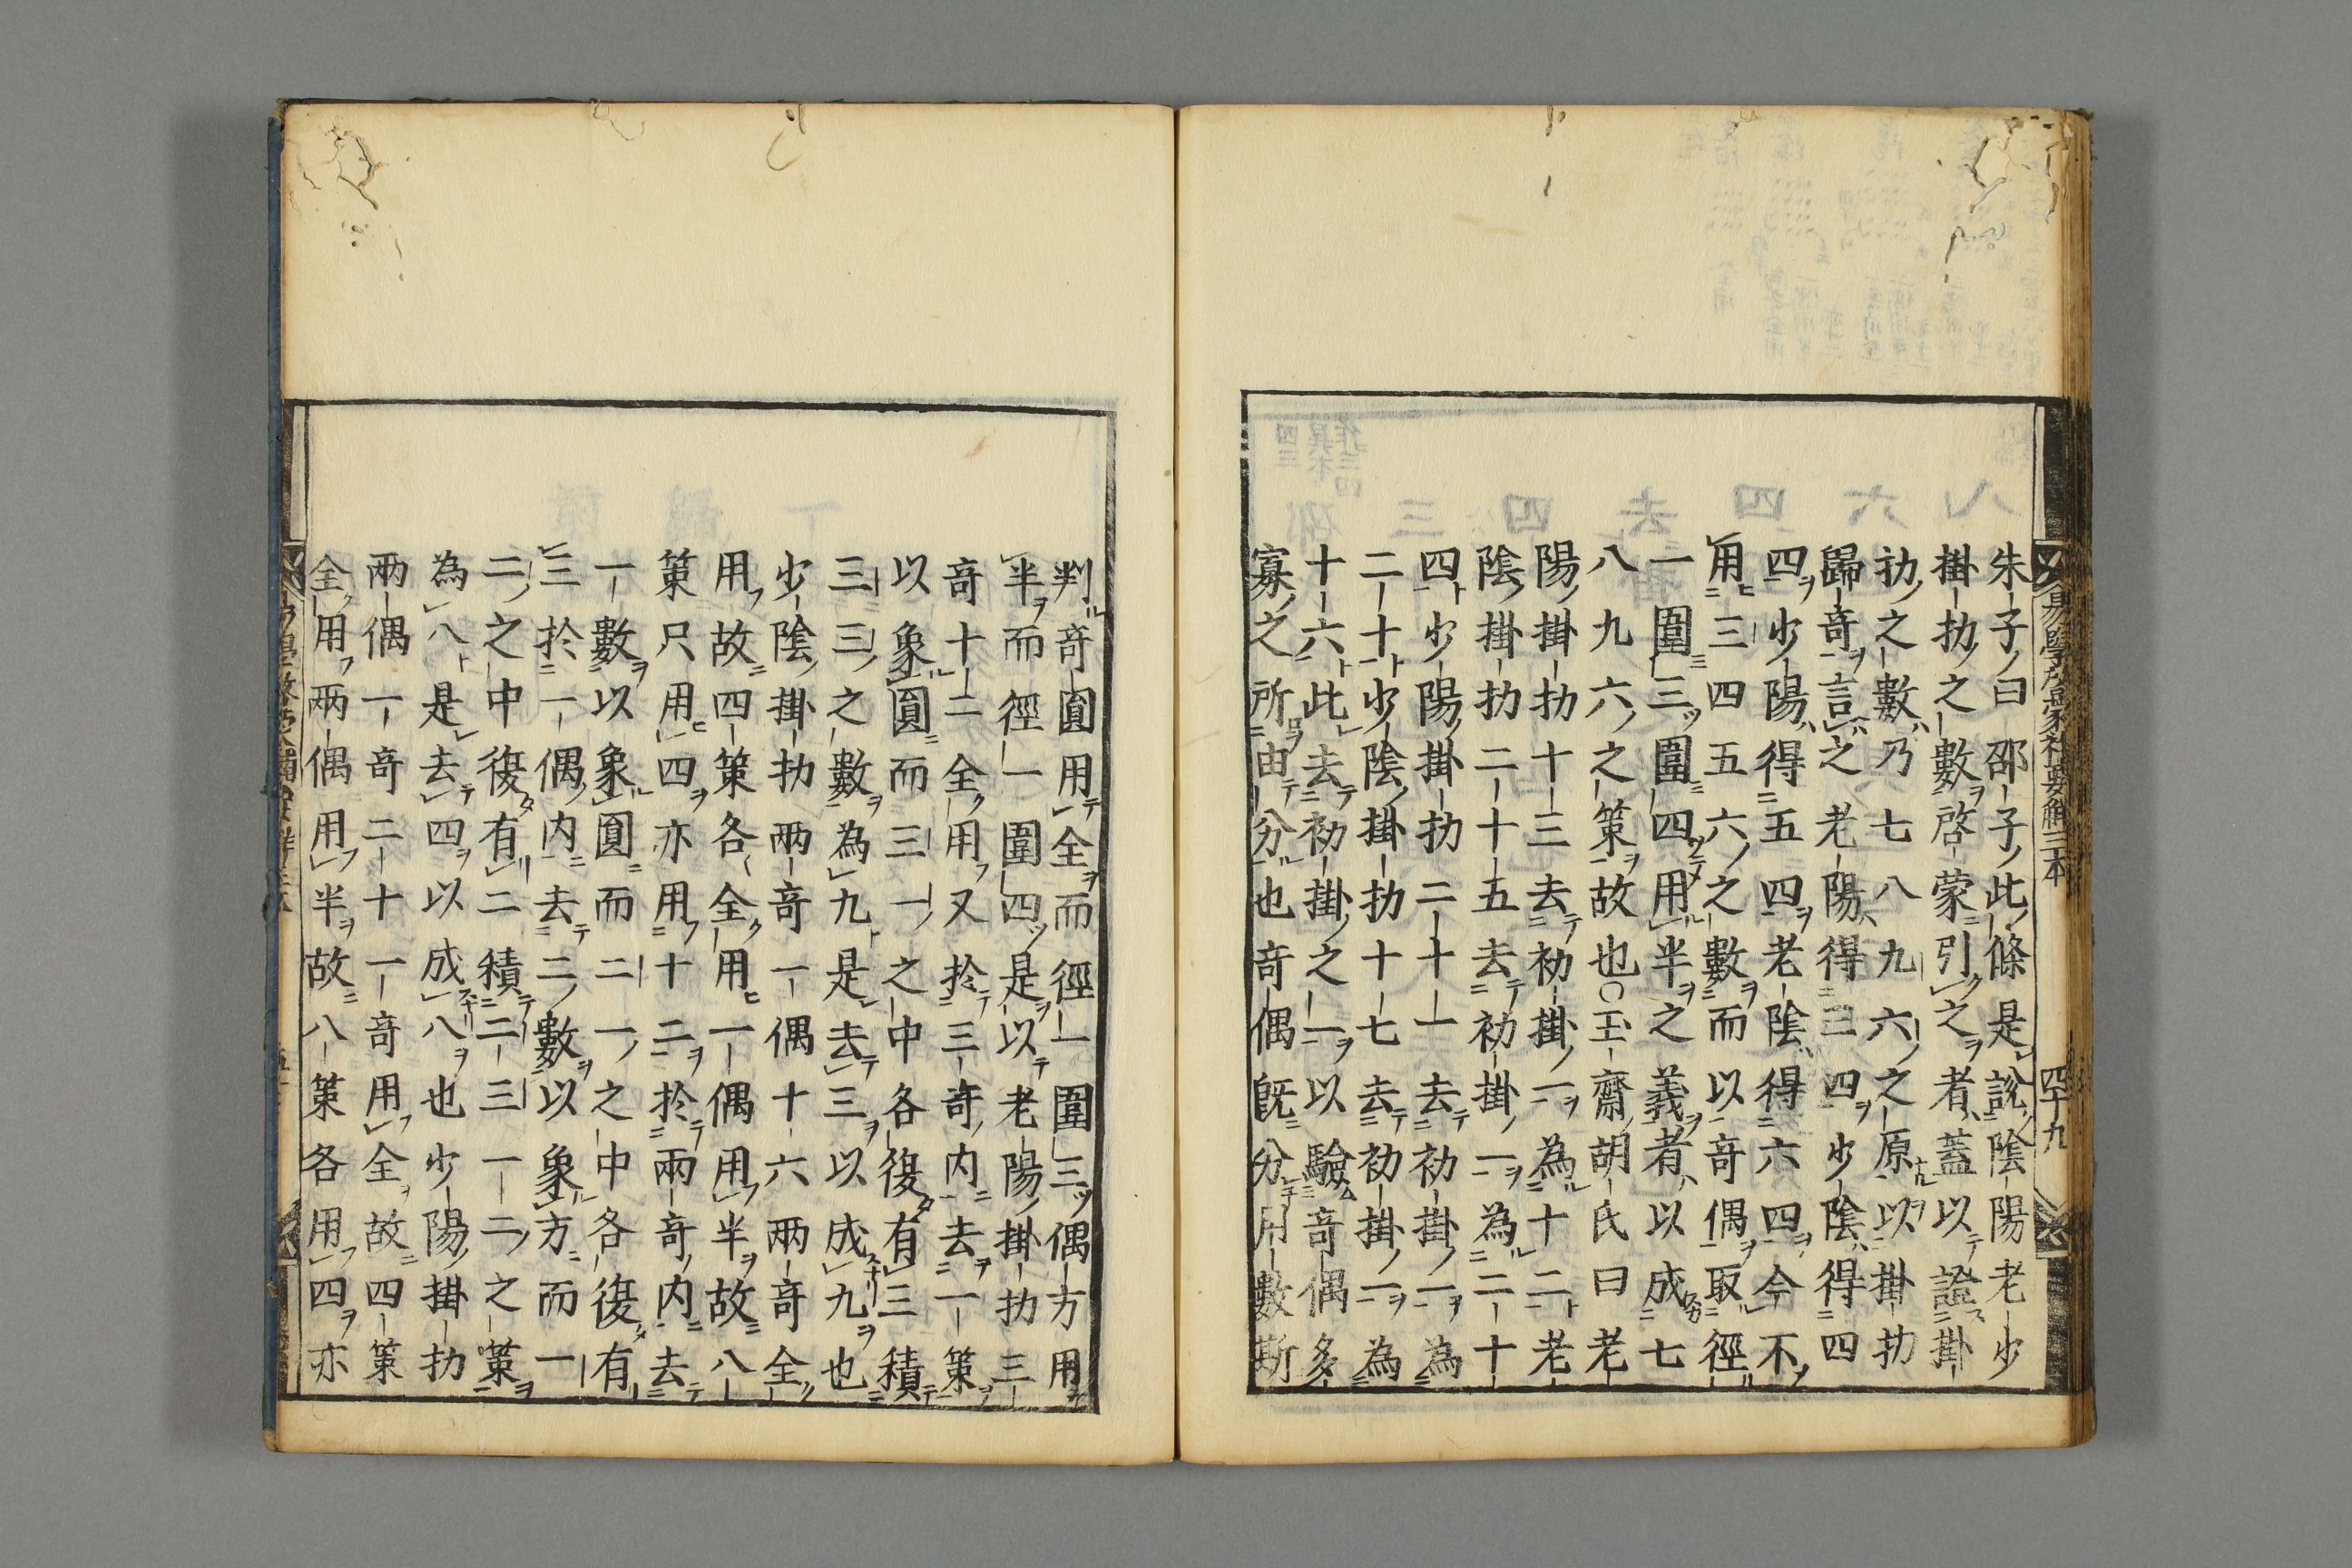 朱子曰邵子此條是說陰陽老少
掛扐之數啓蒙引之者蓋以證掛
扐之數乃七八九六之原以掛扐
歸奇言之老陽得三四少陰得四
四少陽得五四老陰得六四今不
用三四五六之數而以奇偶取徑
一圍三圍四用半之義者以成七
八九六之策故也○玉齋胡氏曰老
陽掛扐十三去初掛一為十二老
陰掛扐二十五去初掛一為二十
四少陽掛扐二十一去初掛一為
二十少陰掛扐十七去初掛一為
十六此去初掛之一以驗奇偶多
寡之所由分也奇偶旣分用數斯
四十九
判奇圓用全而徑一圍三偶方用
半而徑一圍四是以老陽掛扐三
奇十二全用又於三奇内去一策
以象圓而三一之中各復有三積
三三之數為九是去三以成九也
少陰掛扐兩奇一偶十六兩奇全
用故四策各全用一偶用半故八
策只用四亦用十二於兩奇内去
一數以象圓而二一之中各復有
三於一偶内去二數以象方而一
二之中復有二積二三一二之策
為八是去四以成八也少陽掛扐
兩偶一奇二十一奇用全故四策
全用兩偶用半故八策各用四亦